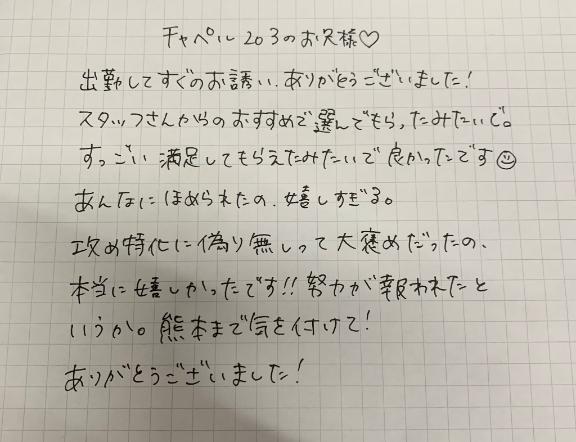 チャペル203のお兄様♡
出勤してすぐのお誘い、ありがとうございました!
スタッフさんからのおすすめで選んでもらったみたいで。
すっごい満足してもらえたみたいで良かったです☺
あんなにほめられたの、嬉しすぎる。
攻め特化に偽り無しって大褒めだったの、
本当に嬉しかったです!!努力が報われたと
いうか。熊本まで気を付けて!
ありがとうございました!